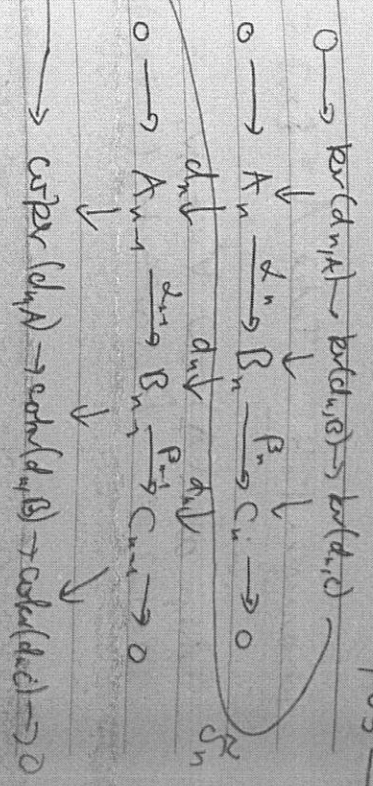 0 → ker(d_{n,A}) → ker(d_{n,B}) → ker(d_{n,C})
↓ ↓ ↓
0 → A_n →^{α_n} B_n →^{β_n} C_n → 0
d_n↓ d_n↓ d_n↓ δ̃_n
0 → A_{n-1} →^{α_{n-1}} B_{n-1} →^{β_{n-1}} C_{n-1} → 0
↓ ↓ ↓
→ coker(d_{n,A}) → coker(d_{n,B}) → coker(d_{n,C}) → 0